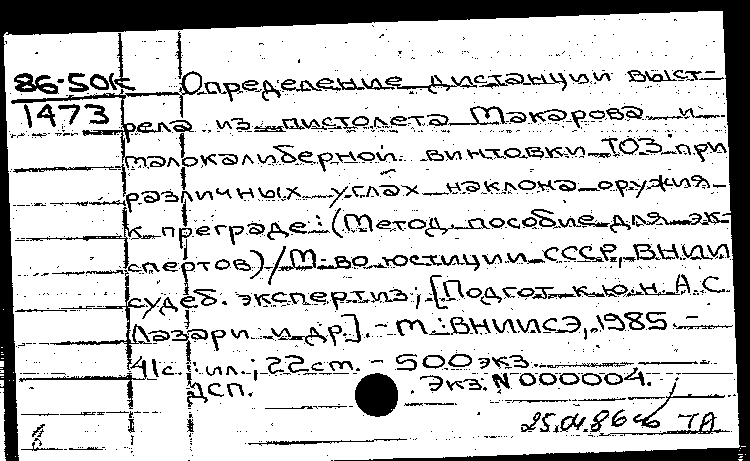 86-50к Определение дистанции выст-
1473 рела из пистолета Макарова и
малокалиберной винтовки ТОЗ при
различных углах наклона оружия
к преграде: (Метод. пособие для эк-
спертов)/М-во юстиции СССР, ВНИИ
судеб. экспертиз; [Подгот. к.ю.н. А.С.
Лазари и др.]. - М.: ВНИИСЭ, 1985. -
41с.: ил.; 22см. - 500экз.
ДСП. Экз. N 000004.
25.04.86 ТА